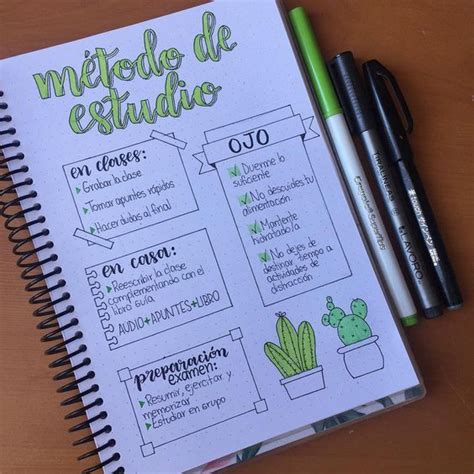 método de
estudio
en clases:
Grabar la clase
Tomar apuntes rápidos
Hacer dudas al final
en casa:
Reescribir la clase
complementando con el
libro guía.
AUDIO+APUNTES+LIBRO
preparación
examen:
Resumir, ejercitar y
memorizar
Estudiar en grupo
OJO
Duerme lo
suficiente
No descuides tu
alimentación
Mantente
hidratado/a
No dejes de
destinar tiempo a
actividades de
distracción